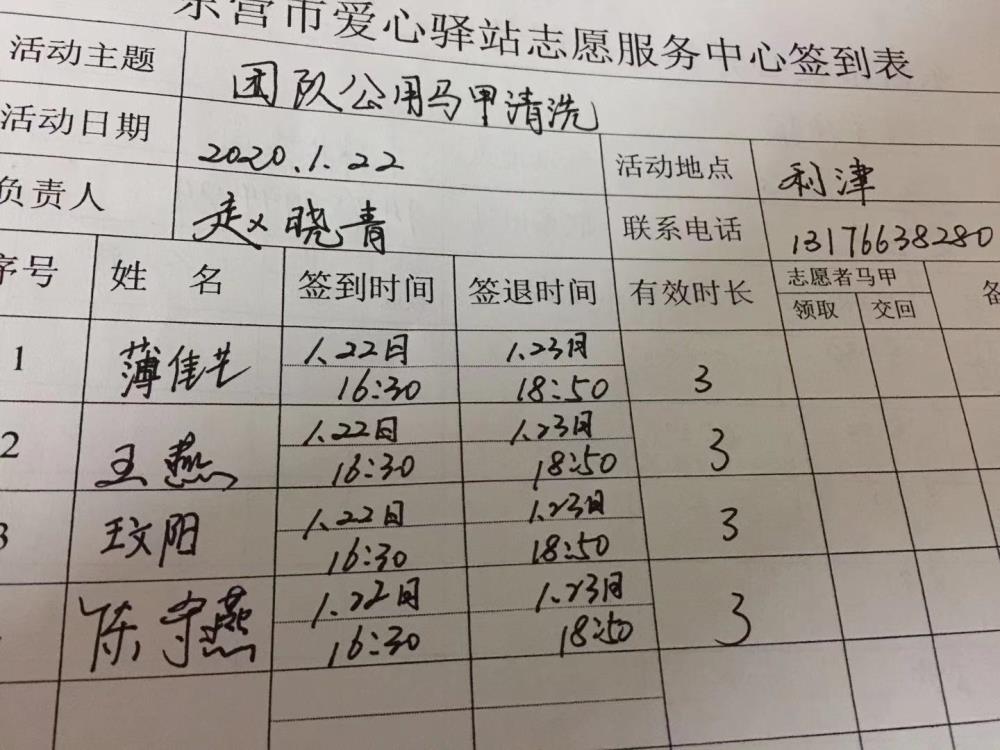 东营市爱心驿站志愿服务中心签到表
活动主题 团队公用马甲清洗
活动日期 2020.1.22 活动地点 利津
负责人 赵晓青 联系电话 13176638280
序号 姓名 签到时间 签退时间 有效时长 志愿者马甲 备
领取 交回
1 薄佳芸 1.22日 1.23日 3
16:30 18:50
2 王燕 1.22日 1.23日 3
16:30 18:50
3 王文阳 1.22日 1.23日 3
16:30 18:50
陈守燕 1.22日 1.23日 3
16:30 18:50